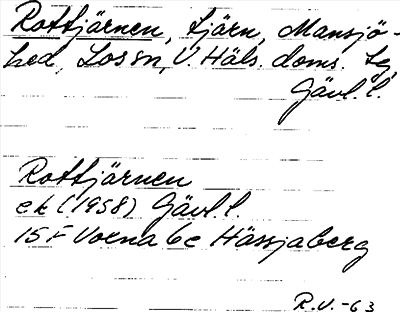 Rottjärnen, tjärn, Mansjö-
hed, Los sn, V. Häls. doms. tg,
Gävl. l.
Rottjärnen
ek (1958) Gävl. l.
15 F Voxna 6c Hässjaberg
R.V. -63